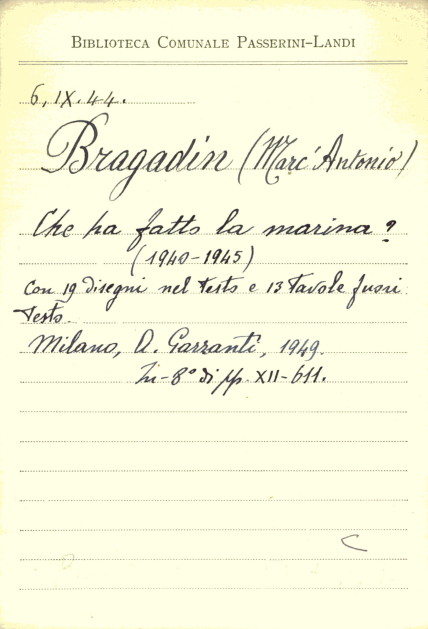 BIBLIOTECA COMUNALE PASSERINI-LANDI
6, IX. 44.
Bragadin (Marc'Antonio)
Che ha fatto la marina?
(1940-1945)
con 19 disegni nel testo e 13 tavole fuori
testo.
Milano, A. Garzanti, 1949.
In-8° di pp. XII-611.
C